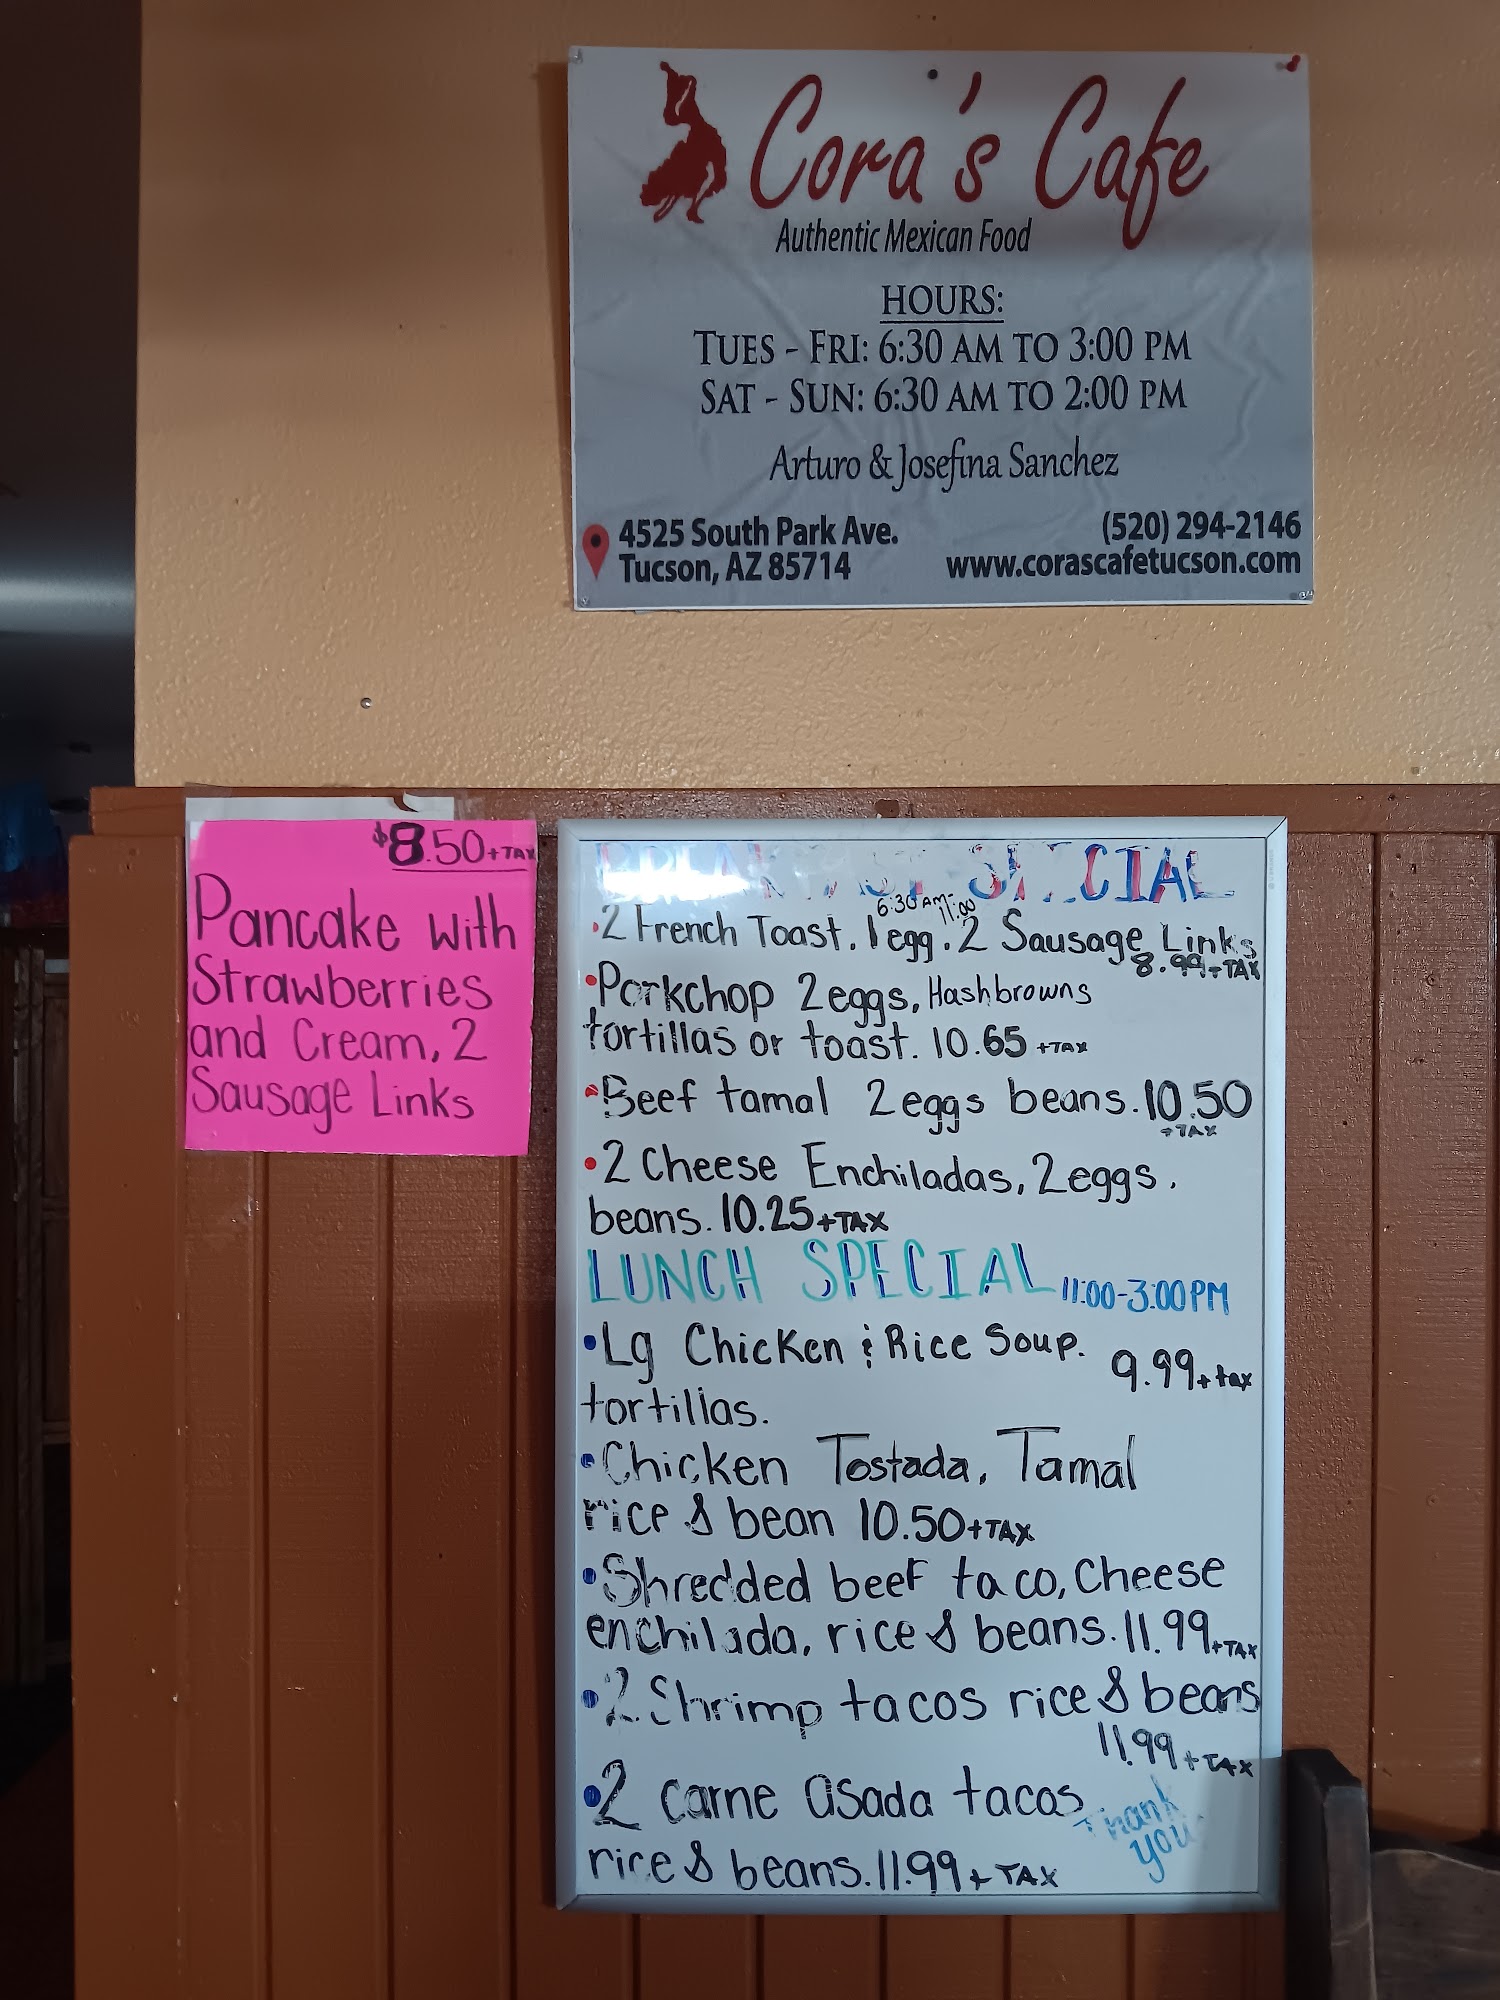 Cora's Cafe
Authentic Mexican Food
HOURS:
TUES - FRI: 6:30 AM TO 3:00 PM
SAT - SUN: 6:30 AM TO 2:00 PM
Arturo & Josefina Sanchez
4525 South Park Ave.
Tucson, AZ 85714
(520) 294-2146
www.corascafetucson.com
$8.50+TAX
Pancake with
Strawberries
and Cream, 2
Sausage Links
BREAKFAST SPECIAL
6:30 AM-11:00
•2 French Toast. 1 egg. 2 Sausage Links
8.99+TAX
•Porkchop 2 eggs, Hashbrowns
tortillas or toast. 10.65 +TAX
•Beef tamal 2 eggs beans. 10.50
+TAX
•2 Cheese Enchiladas, 2 eggs.
beans. 10.25+TAX
LUNCH SPECIAL 11:00-3:00PM
•Lg Chicken & Rice Soup.
9.99+tax
tortillas.
•Chicken Tostada, Tamal
rice & bean 10.50+TAX
•Shredded beef taco, Cheese
enchilada, rice & beans. 11.99+TAX
•2 Shrimp tacos rice & beans
11.99+TAX
•2 carne asada tacos
rice & beans. 11.99+TAX
Thank
you